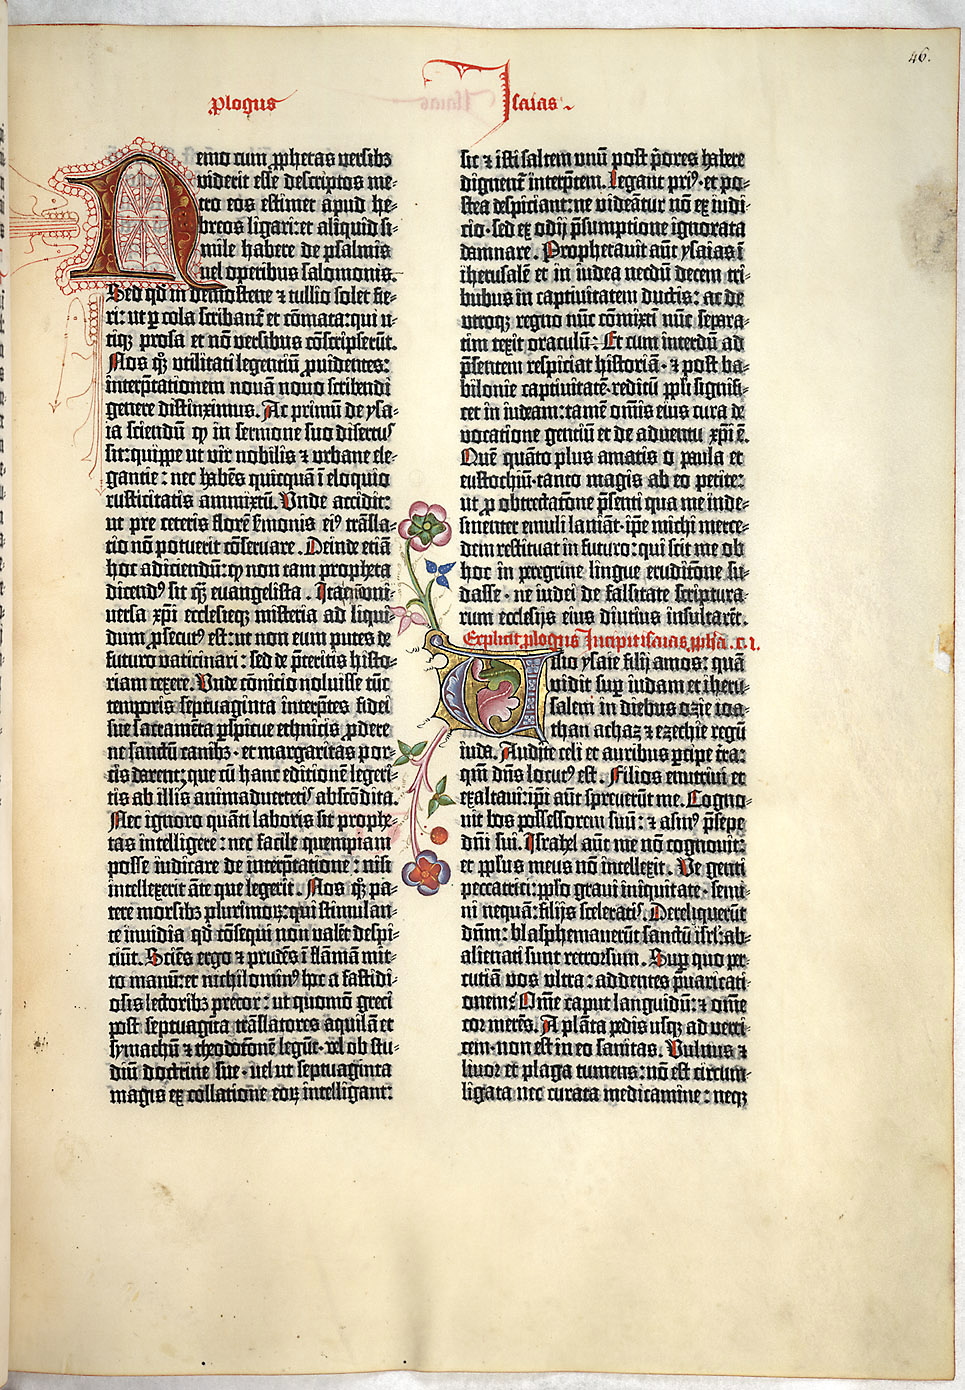 46.
ꝓlogus
Isaias
Nemo cum ꝓphetas versibꝫ
viderit esse descriptos me⸗
tro eos estimet apud he⸗
breos ligari: et aliquid si⸗
mile habere de psalmis
vel operibus salomonis.
Sed qd̄ in demostene ⁊ tullio solet fie⸗
ri: ut ꝑ cola scribant̄ et cōmata: qui u⸗
tiqꝫ prosa et nō versibus cōscripserūt.
Nos qꝫ utilitati legentiū ꝓuidentes:
interp̄tationem nouā nouo scribendi
genere distinximus. Ac primū de ysa⸗
ia sciendū ꝙ in sermone suo disertuꝰ
sit: quippe ut vir nobilis ⁊ urbane ele⸗
gantie: nec habēs quicquā ī eloquio
rusticitatis ammixtū. Vnde accidit:
ut pre ceteris florē s̄monis eiꝰ trāsla⸗
tio nō potuerit cōseruare. Deinde etiā
hoc adiciendū: ꝙ non tam propheta
dicendꝰ sit qꝫ euangelista. Ita em̄ oni⸗
uersa xp̄i ecclesieqꝫ misteria ad liqui⸗
dum ꝓsecutꝰ est: ut non eum putes de
futuro vaticinari: sed de p̄teritis histo⸗
riam texere. Vnde cōnicio noluisse tūc
temporis septuaginta interp̄tes fidei
sue sacramēta ꝑspicue ethnicis ꝓdere
ne sanctū canibꝫ· et margaritas por⸗
cis darent: que cū hanc editionē legeri⸗
tis ab illis animaduertetꝭ abscōdita.
Nec ignoro quāti laboris sit prophe⸗
tas intelligere: nec facile quempiam
posse iudicare de interp̄tatione: nisi
intellexerit āte que legerit. Nos qꝫ pa⸗
tere morsibꝫ plurimoꝝ: qui stimulan⸗
te inuidia qd̄ cōsequi non valēt despi⸗
ciūt. Sciēs ergo ⁊ prudēs ī flāmā mit⸗
to manū: et nichilominꝰ hoc a fastidi⸗
osis lectoribꝫ precor: ut quomō greci
post septuagīta trāslatores aquilā et
symachū ⁊ theodotōnē legūt· vel ob stu⸗
diū doctrine sue· vel ut septuaginta
magis ex collatione eoꝝ intelligant:
sic ⁊ isti saltem unū post p̄ores habere
dignent̄ interp̄tem. Legant priꝰ· et po⸗
stea despiciant: ne videātur nō ex iudi⸗
cio· sed ex odij p̄sumptione ignorata
damnare. Prophetauit aūt ysaias ī
iherusalē et in iudea necdū decem tri⸗
bubus in captiuitatem ductis: ac de
utroqꝫ regno nūc cōmixtī nūc separa⸗
tim texit oraculū: Et cum interdū ad
p̄sentem respiciat historiā· ⁊ post ba⸗
bilonie captiuitatē· reditū ppl̄i signifi⸗
cet in iudeam: tamē om̄is eius cura de
vocatione gentiū et de aduentu xp̄i ē.
Quē quāto plus amatis o paula et
eustochiū· tanto magis ab eo petite:
ut ꝓ obtrectatōne p̄senti qua me inde⸗
sinenter emuli laniāt· ip̄e michi merce⸗
dem restituat in futuro: qui scit me ob
hoc in peregrine lingue eruditōne su⸗
dasse· ne iudei de falsitate scriptura⸗
rum ecclesijs eius diutius insultarēt.
Explicit ꝓlogus Incipit isaias ꝓph̄a. c. i.
Visio ysaie filij amos: quā
vidit suꝑ iudam et iheru⸗
salem in diebus ozie ioa⸗
than achaz ⁊ ezechie regū
iuda. Audite celi et auribus ꝑcipe t̄ra:
qm̄ dn̄s locutꝰ est. Filios enutriui et
exaltaui: ip̄i aūt spreuerūt me. Cogno⸗
uit bos possessorem suū: ⁊ asinꝰ p̄sepe
dn̄i sui. Israhel aūt me nō cognouit:
et pplus meus nō intellexit. Ve genti
peccatrici: pplo graui iniquitate· semi⸗
ni nequā: filijs sceleratꝭ. Dereliquerūt
dn̄m: blasphemauerūt sanctū isrl̄: ab⸗
alienati sunt retrorsum. Suꝑ quo per⸗
cutiā vos ultra: addentes p̄uaricati⸗
onem: Om̄e caput languidū: ⁊ om̄e
cor merēs. A plāta pedis usqꝫ ad verti⸗
cem· non est in eo sanitas. Vulnus ⁊
liuor et plaga tumens: nō est circum⸗
ligata nec curata medicamine: neqꝫ